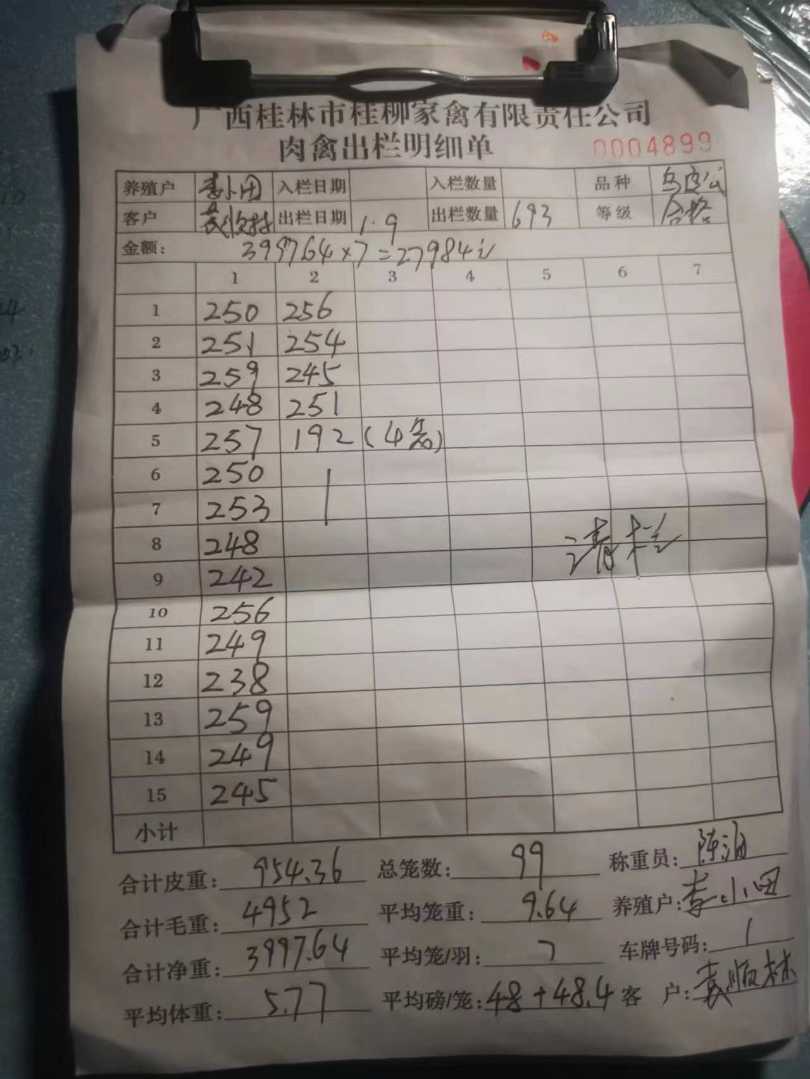 广西桂林市桂柳家禽有限责任公司
肉禽出栏明细单 0004899
养殖户 李小田 入栏日期 入栏数量 品种 乌皮公
客户 袁顺林 出栏日期 1.9 出栏数量 693 等级 合格
金额: 3997.64×7=27984元
1 2 3 4 5 6 7
1 250 256
2 251 254
3 259 245
4 248 251
5 257 192 (4笼)
6 250
7 253
8 248 清栏
9 242
10 256
11 249
12 238
13 259
14 249
15 245
小计
合计皮重: 954.36 总笼数: 99 称重员: 陈
合计毛重: 4952 平均笼重: 9.64 养殖户: 李小田
合计净重: 3997.64 平均笼/羽: 7 车牌号码: 1
平均体重: 5.77 平均磅/笼: 48+48.4 客户: 袁顺林